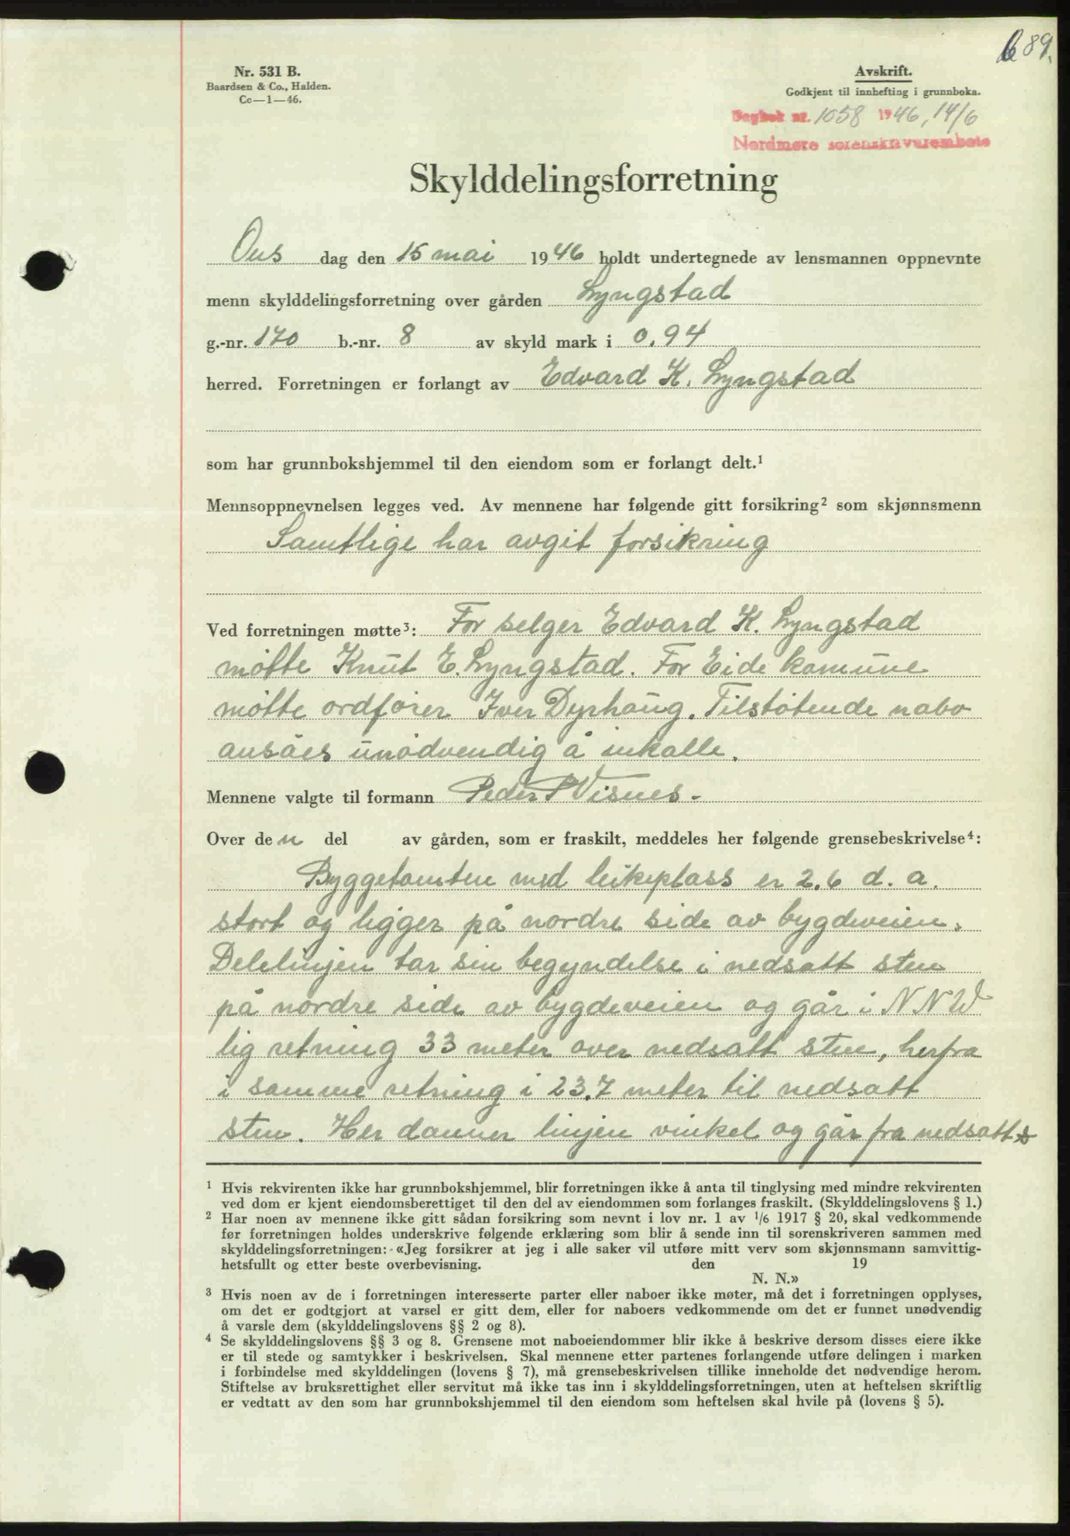 689.
Nr. 531 B.
Baardsen & Co., Halden.
Cc—1—46.
Avskrift.
Godkjent til innhefting i grunnboka.
Dagbok nr. 1058 1946, 14/6
Nordmøre sorenskriverembete
Skylddelingsforretning
Ons dag den 15 mai 1946 holdt undertegnede av lensmannen oppnevnte
menn skylddelingsforretning over gården Lyngstad
g.-nr. 170 b.-nr. 8 av skyld mark i 0,94
herred. Forretningen er forlangt av Edvard K. Lyngstad
som har grunnbokshjemmel til den eiendom som er forlangt delt.¹
Mennsoppnevnelsen legges ved. Av mennene har følgende gitt forsikring² som skjønnsmenn
Samtlige har avgit forsikring
Ved forretningen møtte³: For selger Edvard K. Lyngstad
møtte Knut E. Lyngstad. For Eide komune
møtte ordfører Iver Dyrhaug. Tilstøtende nabo
ansåes unødvendig å inkalle.
Mennene valgte til formann Peder P Visnes.
Over den del av gården, som er fraskilt, meddeles her følgende grensebeskrivelse⁴:
Byggetomten med leikeplass er 2.6 d. a.
stort og ligger på nordre side av bygdeveien.
Delelinjen tar sin begyndelse i nedsatt sten
på nordre side av bygdeveien og går i N N W
lig retning 33 meter over nedsatt sten, herfra
i samme retning i 23.7 meter til nedsatt
sten. Her danner linjen vinkel og går fra nedsatt
¹ Hvis rekvirenten ikke har grunnbokshjemmel, blir forretningen ikke å anta til tinglysing med mindre rekvirenten
ved dom er kjent eiendomsberettiget til den del av eiendommen som forlanges fraskilt. (Skylddelingslovens § 1.)
² Har noen av mennene ikke gitt sådan forsikring som nevnt i lov nr. 1 av ¹/₆ 1917 § 20, skal vedkommende
før forretningen holdes underskrive følgende erklæring som blir å sende inn til sorenskriveren sammen med
skylddelingsforretningen: «Jeg forsikrer at jeg i alle saker vil utføre mitt verv som skjønnsmann samvittig-
hetsfullt og etter beste overbevisning. den 19
N. N.»
³ Hvis noen av de i forretningen interesserte parter eller naboer ikke møter, må det i forretningen opplyses,
om det er godtgjort at varsel er gitt dem, eller for naboers vedkommende om det er funnet unødvendig
å varsle dem (skylddelingslovens §§ 2 og 8).
⁴ Se skylddelingslovens §§ 3 og 8. Grensene mot naboeiendommer blir ikke å beskrive dersom disses eiere ikke
er til stede og samtykker i beskrivelsen. Skal mennene etter partenes forlangende utføre delingen i marken
i forbindelse med skylddelingen (lovens § 7), må grensebeskrivelsen tillike inneholde det nødvendige herom.
Stiftelse av bruksrettighet eller servitut må ikke tas inn i skylddelingsforretningen, uten at heftelsen skriftlig
er vedtatt av den som har grunnbokshjemmel til den eiendom som heftelsen skal hvile på (lovens § 5).